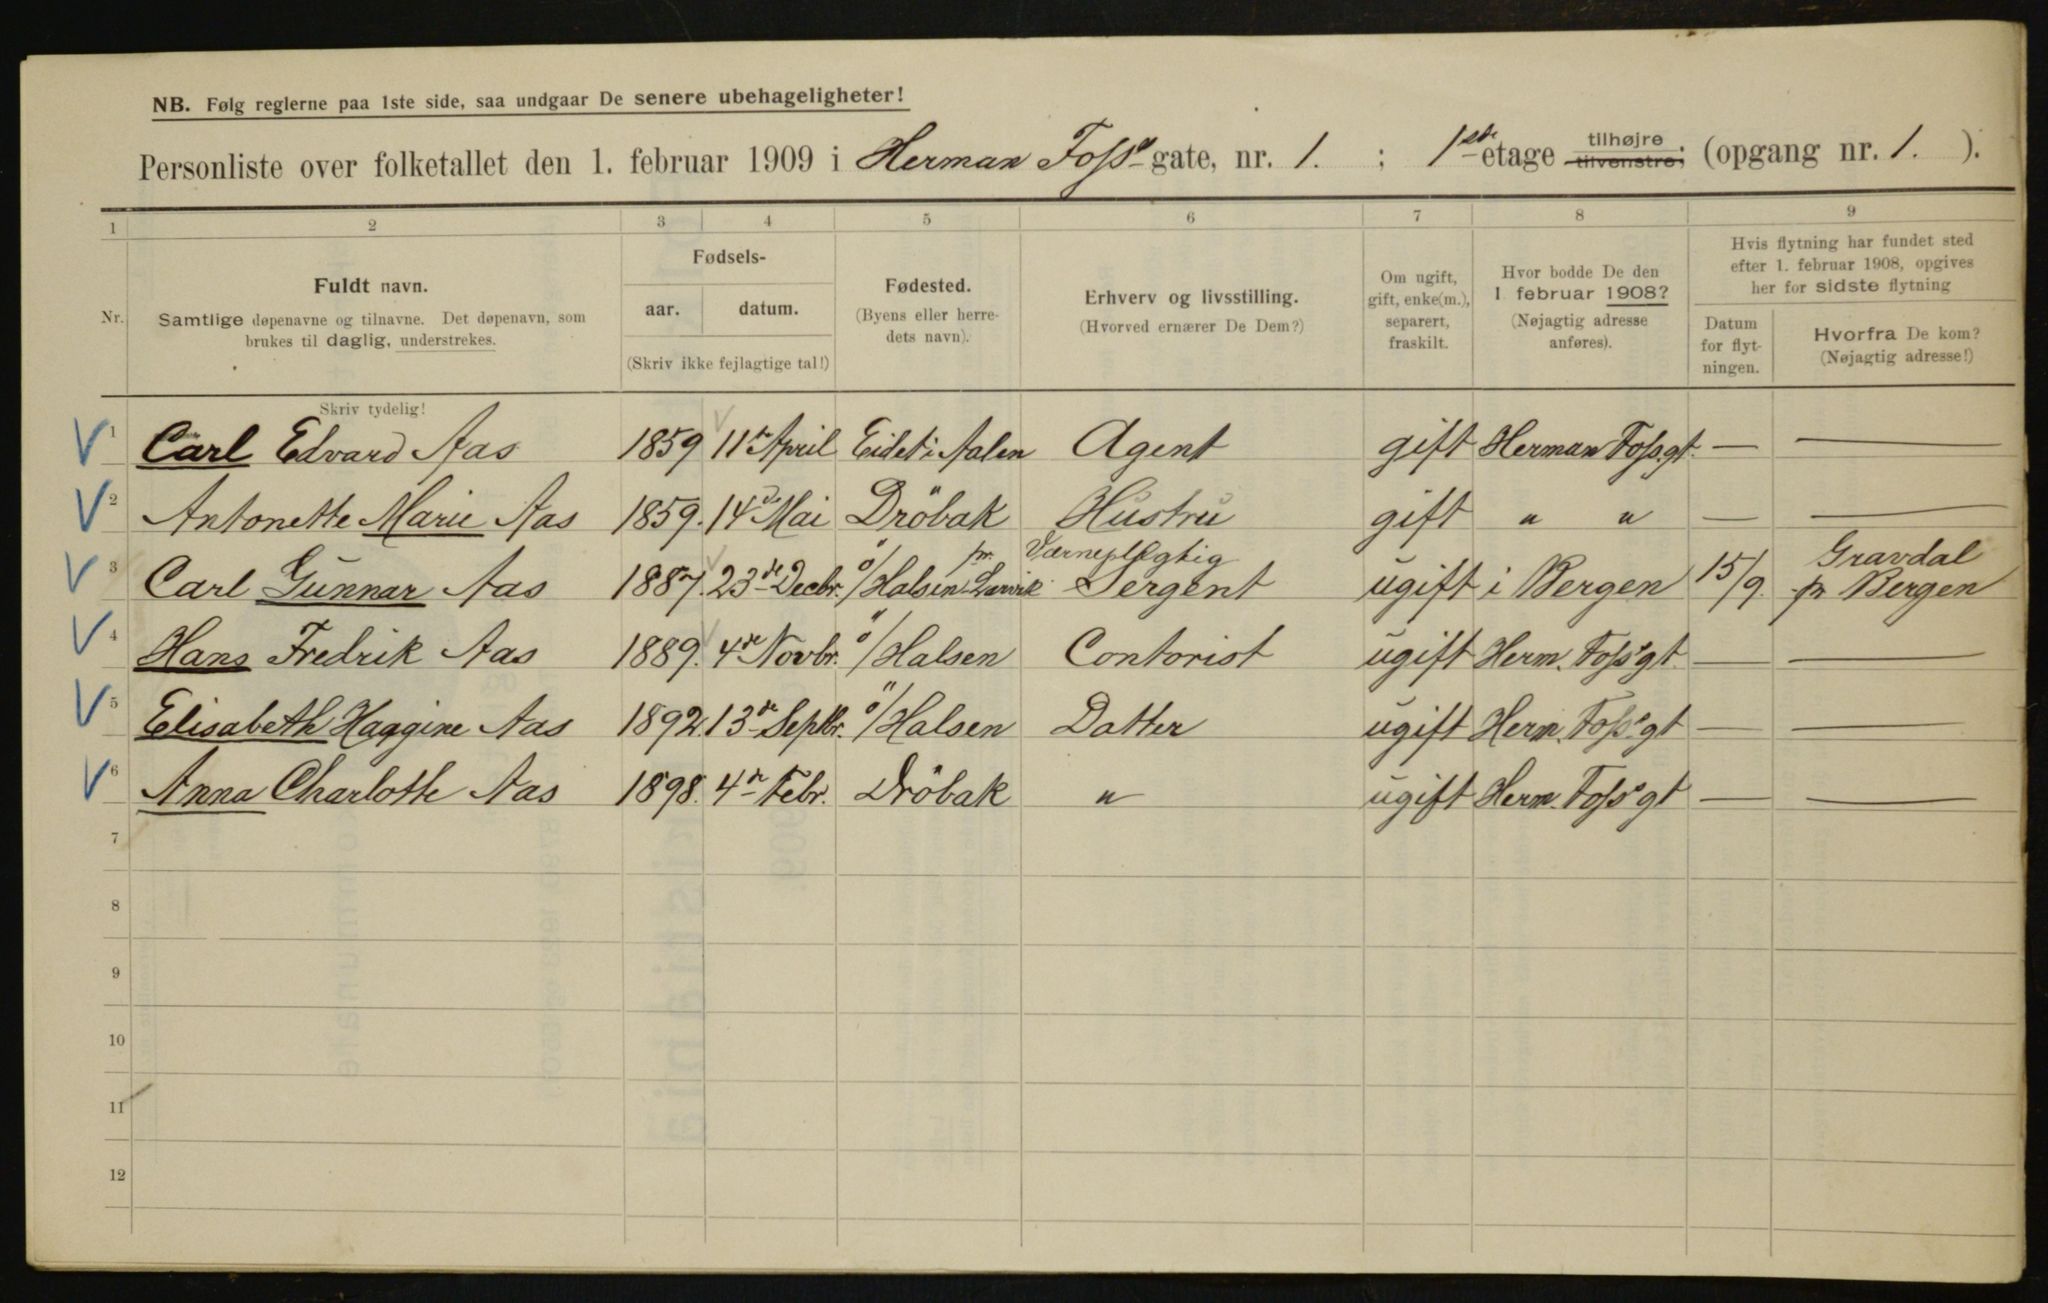 NB. Følg reglerne paa 1ste side, saa undgaar De senere ubehageligheter!
Personliste over folketallet den 1. februar 1909 i Herman Foss' gate, nr. 1. ; 1ste etage tilhøjre, tilvenstre; (opgang nr. 1. ).
1 2 3 4 5 6 7 8 9
Nr.
Fuldt navn.
Samtlige døpenavne og tilnavne. Det døpenavn, som
brukes til daglig, understrekes.
Fødsels-
aar. datum.
(Skriv ikke fejlagtige tal!)
Fødested.
(Byens eller herre-
dets navn).
Erhverv og livsstilling.
(Hvorved ernærer De Dem?)
Om ugift,
gift, enke(m.),
separert,
fraskilt.
Hvor bodde De den
1 februar 1908?
(Nøjagtig adresse
anføres).
Hvis flytning har fundet sted
efter 1. februar 1908, opgives
her for sidste flytning
Datum
for flyt-
ningen.
Hvorfra De kom?
(Nøjagtig adresse!)
Skriv tydelig!
1 Carl Edvard Aas 1859 11te April Eidet i Aalen Agent gift Herman Foss.gt. — —
2 Antonette Marie Aas 1859. 14de Mai Dröbak Hustru gift " " — —
3 Carl Gunnar Aas 1887. 23de Decbr. Halsen pr. Larvik Værnepligtig Sergent ugift i Bergen 15/9. Gravdal pr Bergen
4 Hans Fredrik Aas 1889. 4de Novbr. Halsen Contorist ugift Herm. Foss' gt — —
5 Elisabeth Haagine Aas 1892. 13de Septbr. Halsen Datter ugift Herm. Foss' gt — —
6 Anna Charlotte Aas 1898. 4de Febr. Dröbak " ugift Herm. Foss' gt — —
7
8
9
10
11
12